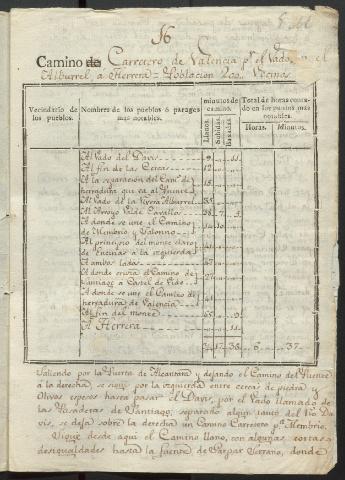 16
Camino de Carretero de Valencia p.r el Vado
Alburrel, a Herrera = Poblacion 200. Vecinos
Vecindario de los pueblos.
Nombres de los pueblos ó parages mas notables.
minutos de camino.
Llanos.
Subidas.
Baxadas.
Total de horas contado en los puntos mas notables.
Horas.
Minutos.
Al Vado del Davis
Al fin de las Cercas
A la separacion del Cam.o de
herradura que va al Puente
Al Vado de la Rivera Alburrel
Al Arroyo Val de Cavallos
A donde se une el Camino
de Membrio y Salorino
Al principio del monte claro
de Encinar a la izquierda
A ambos lados
A donde cruza el Camino de
Santiago a Castel de Vide
A donde se une el Camino de
herradura de Valencia
Al fin del monte
A Herrera
17 38 6 37
Saliendo por la Puerta de Alcantara y dejando el Camino del Puente
a la derecha, se sigue por la izquierda entre cercas de piedra y
Olivos espesos hasta pasar el Davis, por el Vado llamado de
las Pasaderas de Santiago; separado algun tanto del Rio Da-
vis, se deja sobre la derecha un Camino Carretero p.a Membrio.
Sigue desde aqui el Camino llano, con algunas cortas
desigualdades hasta la fuente de Gaspar Serrano, donde